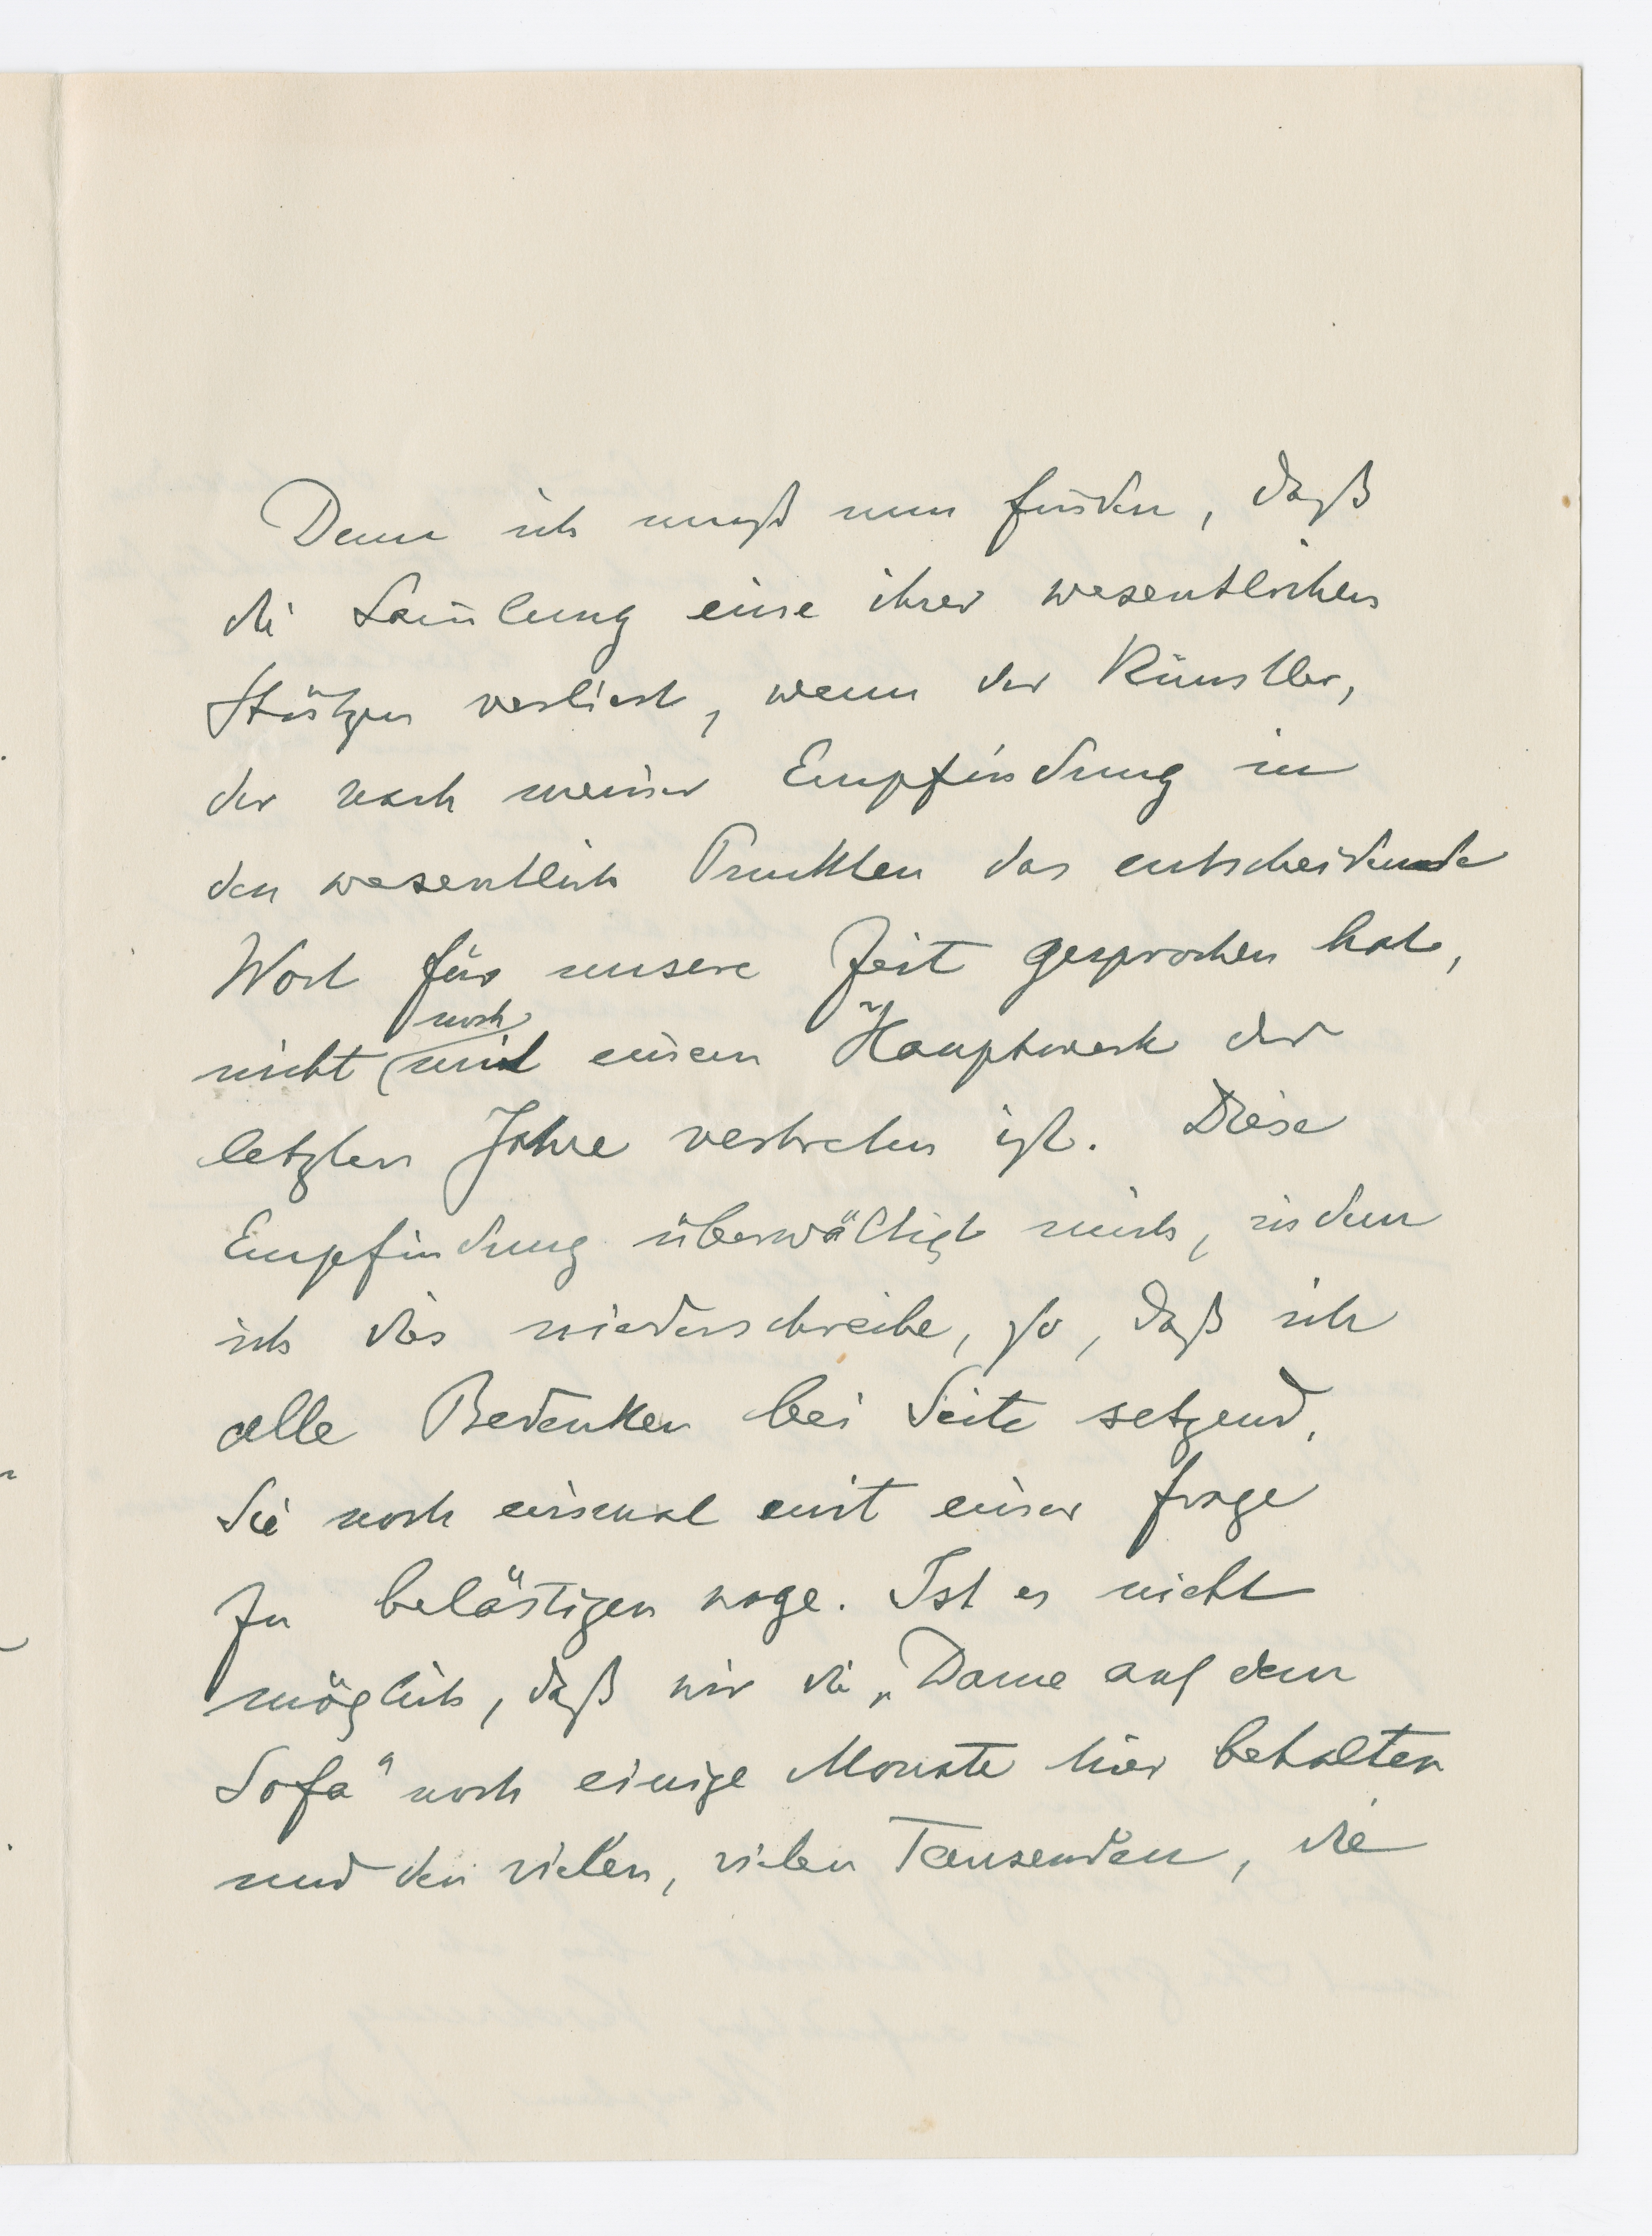 Denn ich muß nun finden, daß
die Sam̄lung eine ihrer wesentlichen
Stützen verliert, wenn der Künstler,
der nach meiner Empfindung in
den wesentlich Punkten das entscheidende
Wort für unsere Zeit gesprochen hat,
noch
nicht mit einem Hauptwerk der
letzten Jahre vertreten ist. Diese
Empfindung überwältigt mich, indem
ich dies niederschreibe, so, daß ich
alle Bedenken bei Seite setzend,
Sie noch einmal mit einer Frage
zu belästigen wage. Ist es nicht
möglich, daß wir die „Dame auf dem
Sofa" noch einige Monate hier behalten
und den vielen, vielen Tausenden, die